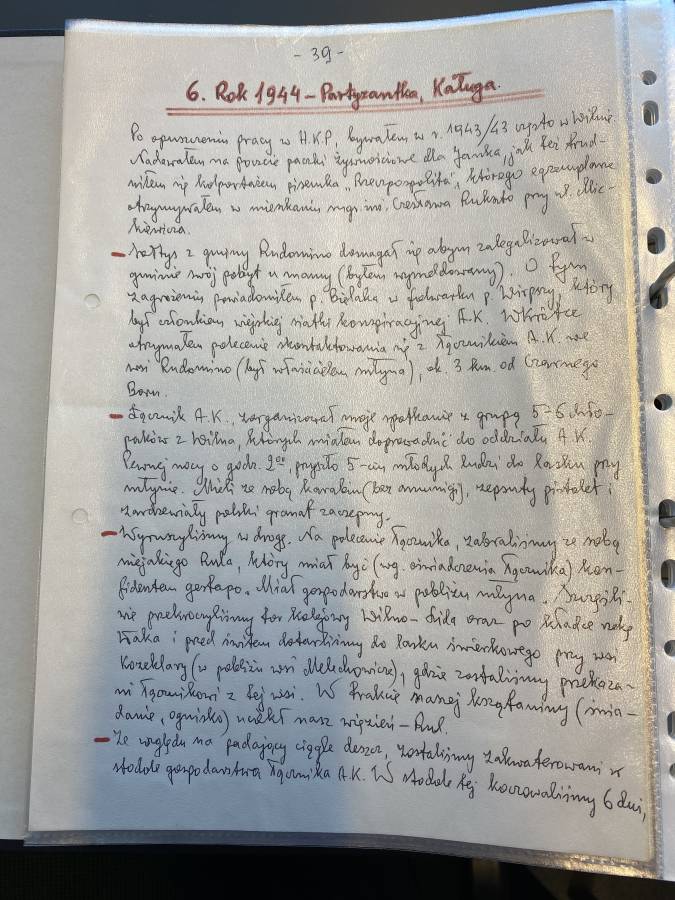 - 39 -
6. Rok 1944 – Partyzantka, Kaługa.
Po opuszczeniu pracy w H.K.P, bywałem w r. 1943/43 często w Wilnie.
Nadawałem na poczcie paczki żywnościowe dla Janka, jak też trud-
niłem się kolportażem pisemka "Rzeczpospolita", którego egzemplarze
otrzymywałem w mieszkaniu mgr. inż. Czesława przy ul. Mic-
kiewicza.
– Sołtys z gminy Rudomino domagał się abym zalegalizował w
gminie swój pobyt u mamy (byłem wymeldowany). O tym
zagrożeniu powiadomiłem p. Bielaka w folwarku p. Wirpszy, który
był członkiem wiejskiej siatki konspiracyjnej A.K. Wkrótce
otrzymałem polecenie skontaktowania się z łącznikiem A.K. we
wsi Rudomino (był właścicielem młyna), ok. 3 km. od Czarnego
Boru.
– Łącznik A.K., zorganizował moje spotkanie z grupą 5-6 chło-
paków z Wilna, których miałem doprowadzić do oddziału A.K.
Pewnej nocy o godz. 2⁰⁰, przyszło 5-ciu młodych ludzi do lasku przy
młynie. Mieli ze sobą karabin (bez amunicji), zepsuty pistolet i
zardzewiały polski granat zaczepny.
– Wyruszyliśmy w drogę. Na polecenie łącznika, zabraliśmy ze sobą
niejakiego Rula, który miał być (wg. oświadczenia łącznika) kon-
fidentem gestapo. Miał gospodarstwo w pobliżu młyna. Szczęśli-
wie przekroczyliśmy tor kolejowy Wilno – Lida oraz po kładce rzekę
Waka i przed świtem dotarliśmy do lasku świerkowego przy wsi
Kozeklary (w pobliżu wsi Melechowicze), gdzie zostaliśmy przekaza-
ni łącznikowi z tej wsi. W trakcie naszej krzątaniny (śnia-
danie, ognisko) uciekł nasz więzień – Rul.
– Ze względu na padający ciągle deszcz, zostaliśmy zakwaterowani w
stodole gospodarstwa łącznika A.K. W stodole tej koczowaliśmy 6 dni,